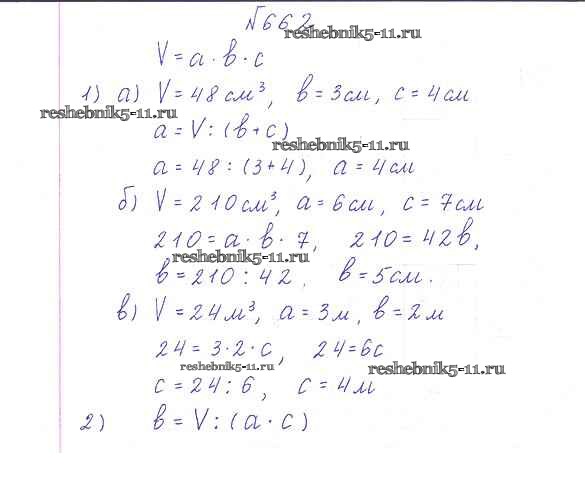 №662
reshebnik5-11.ru
V = a · b · c
1) а) V = 48 см³, b = 3 см, c = 4 см
reshebnik5-11.ru
a = V : (b + c)
reshebnik5-11.ru
a = 48 : (3 + 4), a = 4 см
б) V = 210 см³, a = 6 см, c = 7 см
210 = a · b · 7, 210 = 42b,
reshebnik5-11.ru
b = 210 : 42, b = 5 см.
в) V = 24 м³, a = 3 м, b = 2 м
24 = 3 · 2 · c, 24 = 6c
reshebnik5-11.ru
reshebnik5-11.ru
c = 24 : 6, c = 4 м
2) b = V : (a · c)